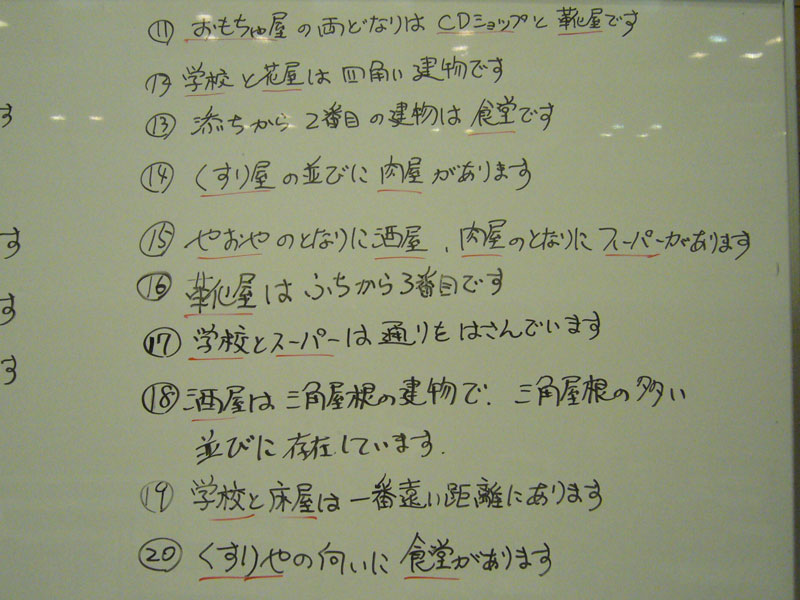 ⑪ おもちゃ屋の両どなりはCDショップと靴屋です
⑫ 学校と花屋は四角い建物です
⑬ 添ちから2番目の建物は食堂です
⑭ くすり屋の並びに肉屋があります
⑮ やおやのとなりに酒屋、肉屋のとなりにスーパーがあります
⑯ 靴屋はふちから3番目です
⑰ 学校とスーパーは通りをはさんでいます
⑱ 酒屋は三角屋根の建物で、三角屋根の多い
並びに存在しています.
⑲ 学校と床屋は一番遠い距離にあります
⑳ くすりやの向いに食堂があります
す
す
す
す